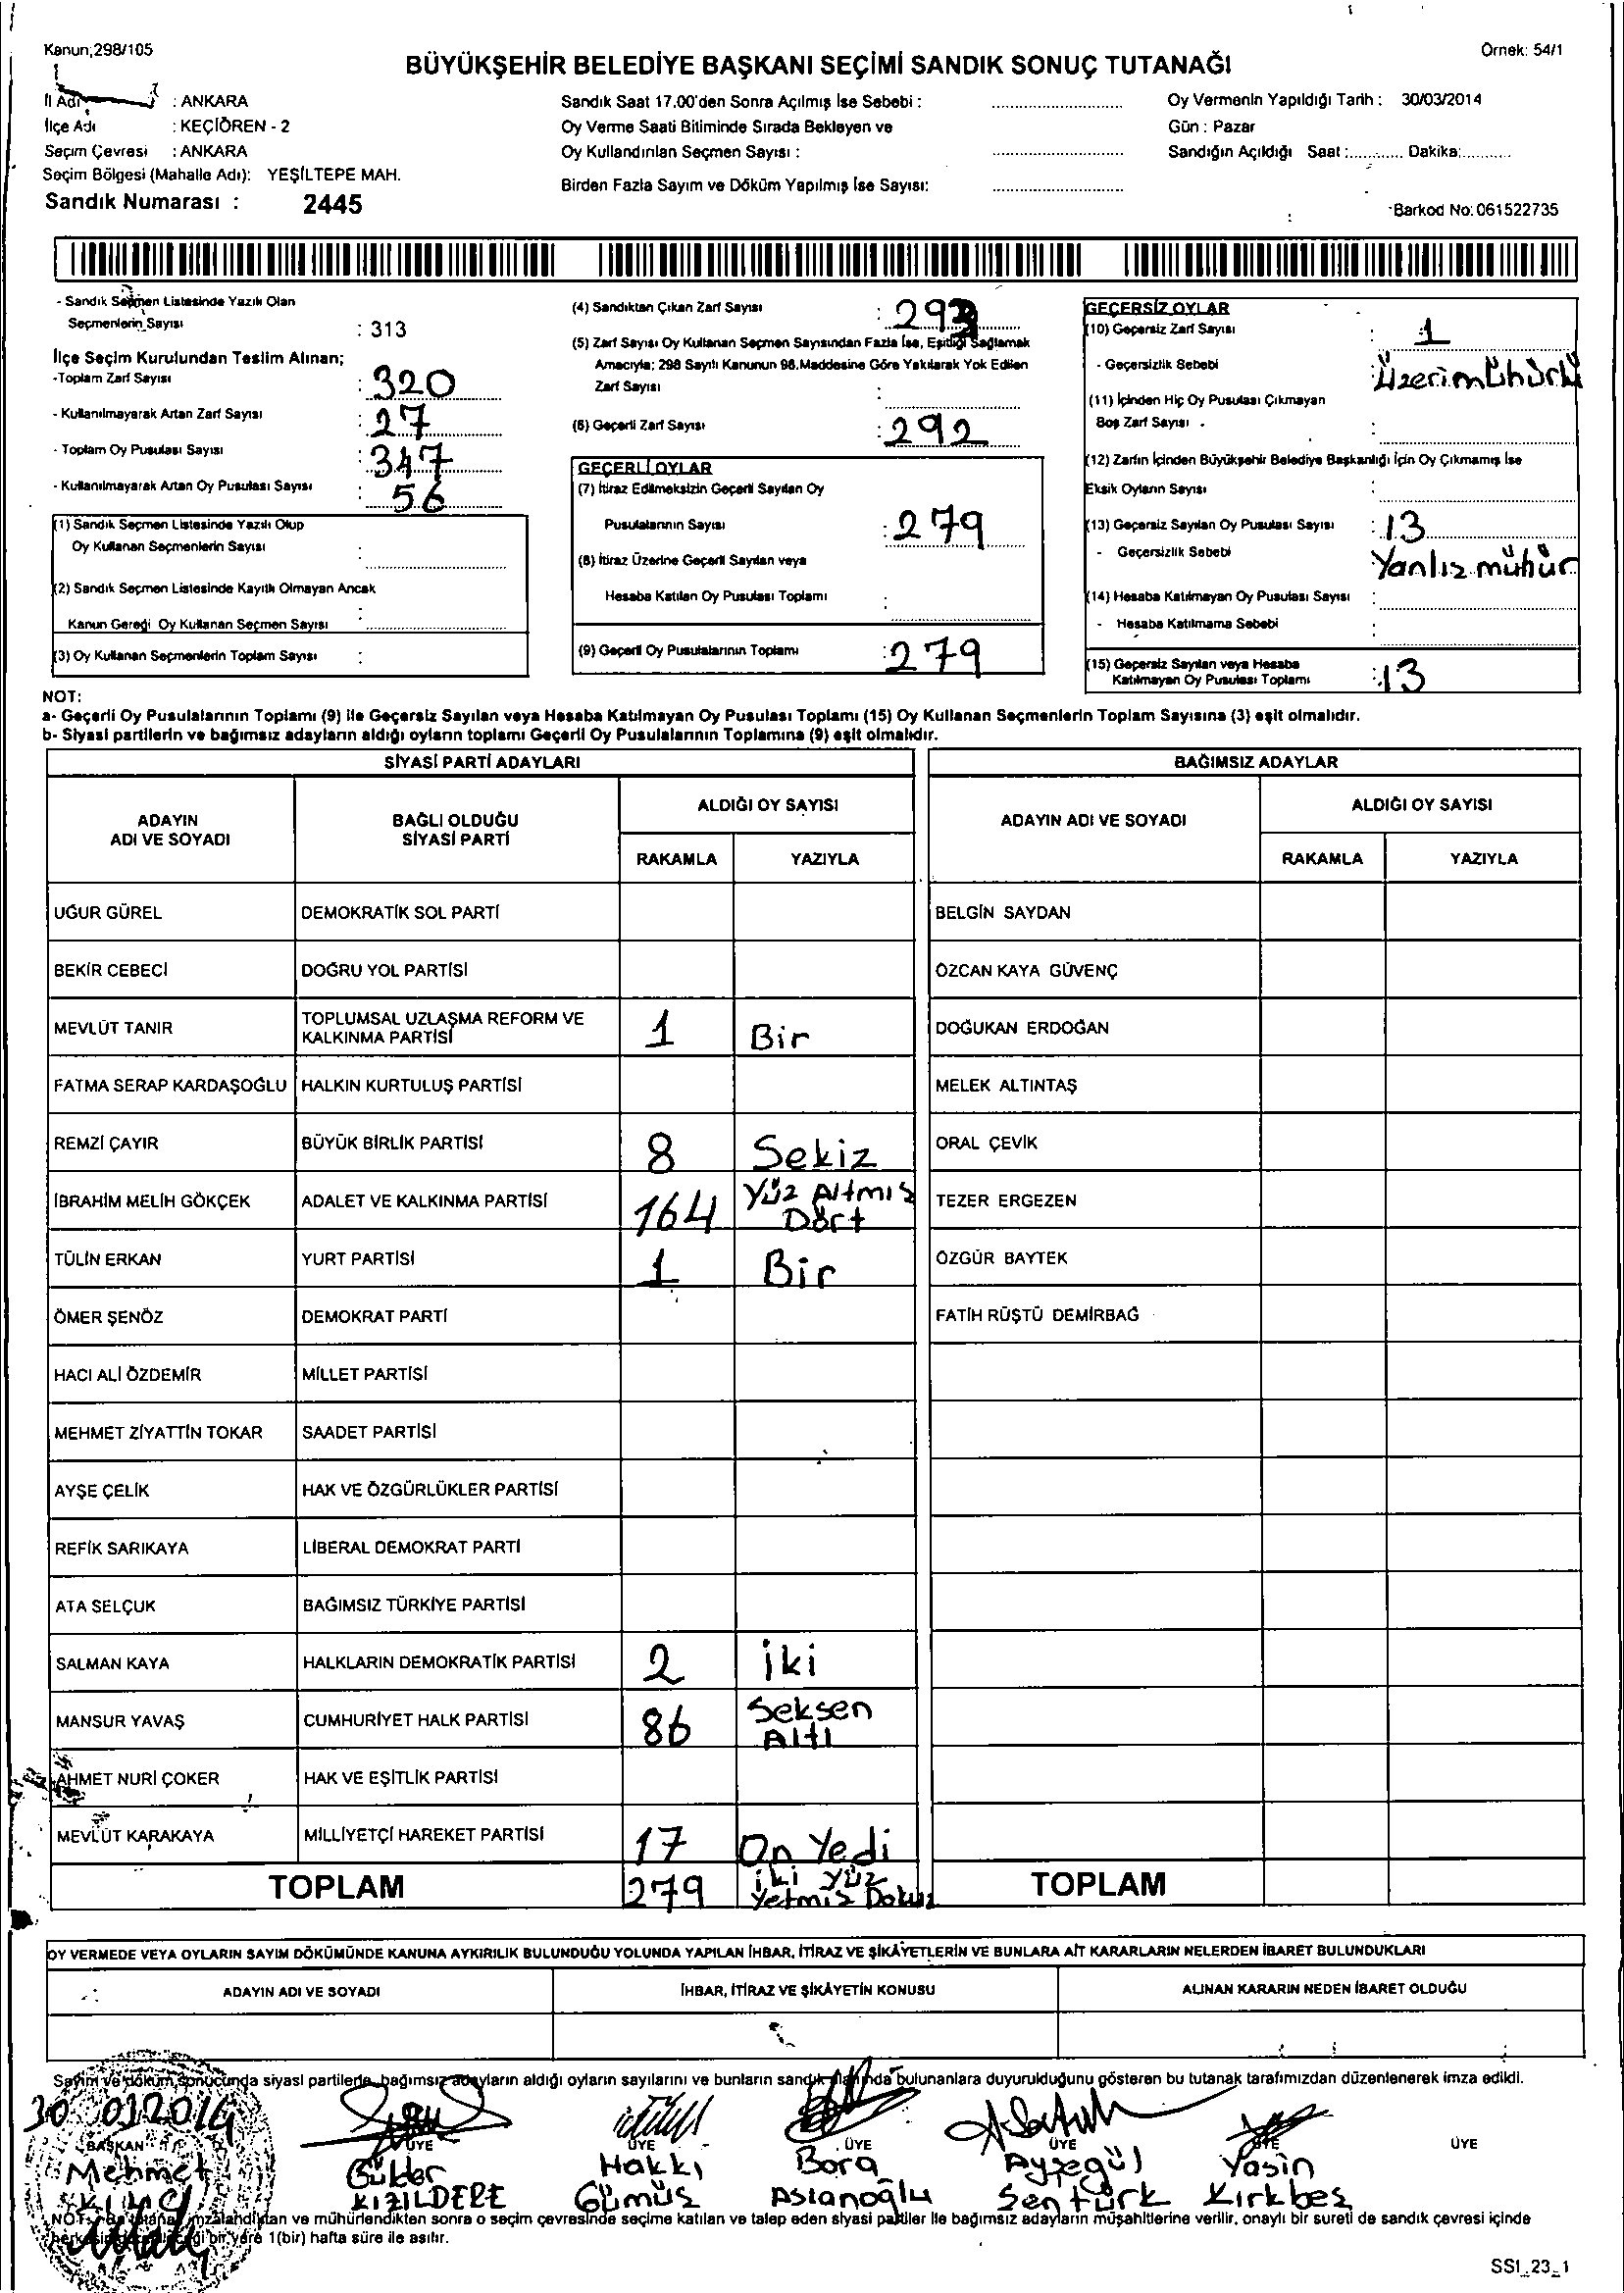 Kanun;298/105
Örnek: 54/1
BÜYÜKŞEHİR BELEDİYE BAŞKANI SEÇİMİ SANDIK SONUÇ TUTANAĞI
İl Adı : ANKARA
İlçe Adı : KEÇİÖREN - 2
Seçim Çevresi : ANKARA
Seçim Bölgesi (Mahalle Adı): YEŞİLTEPE MAH.
Sandık Numarası : 2445
Sandık Saat 17.00'den Sonra Açılmış İse Sebebi :
Oy Verme Saati Bitiminde Sırada Bekleyen ve
Oy Kullandırılan Seçmen Sayısı :
Birden Fazla Sayım ve Döküm Yapılmış İse Sayısı:
Oy Vermenin Yapıldığı Tarih : 30/03/2014
Gün : Pazar
Sandığın Açıldığı Saat :............ Dakika:...........
Barkod No: 061522735
- Sandık Seçmen Listesinde Yazılı Olan
Seçmenlerin Sayısı : 313
İlçe Seçim Kurulundan Teslim Alınan;
-Toplam Zarf Sayısı : 320
- Kullanılmayarak Artan Zarf Sayısı : 27
- Toplam Oy Pusulası Sayısı : 347
- Kullanılmayarak Artan Oy Pusulası Sayısı : 56
(1) Sandık Seçmen Listesinde Yazılı Olup
Oy Kullanan Seçmenlerin Sayısı :
(2) Sandık Seçmen Listesinde Kayıtlı Olmayan Ancak
Kanun Gereği Oy Kullanan Seçmen Sayısı :
(3) Oy Kullanan Seçmenlerin Toplam Sayısı :
(4) Sandıktan Çıkan Zarf Sayısı : 293
(5) Zarf Sayısı Oy Kullanan Seçmen Sayısından Fazla İse, Eşitliği Sağlamak
Amacıyla; 298 Sayılı Kanunun 98.Maddesine Göre Yakılarak Yok Edilen
Zarf Sayısı :
(6) Geçerli Zarf Sayısı : 292
GEÇERLİ OYLAR
(7) İtiraz Edilmeksizin Geçerli Sayılan Oy
Pusulalarının Sayısı : 279
(8) İtiraz Üzerine Geçerli Sayılan veya
Hesaba Katılan Oy Pusulası Toplamı :
(9) Geçerli Oy Pusulalarının Toplamı : 279
GEÇERSİZ OYLAR
(10) Geçersiz Zarf Sayısı : 1
- Geçersizlik Sebebi : Üzeri mühürlü
(11) İçinden Hiç Oy Pusulası Çıkmayan
Boş Zarf Sayısı :
(12) Zarfın İçinden Büyükşehir Belediye Başkanlığı İçin Oy Çıkmamış İse
Eksik Oyların Sayısı :
(13) Geçersiz Sayılan Oy Pusulası Sayısı : 13
- Geçersizlik Sebebi Yanlız mühür
(14) Hesaba Katılmayan Oy Pusulası Sayısı :
- Hesaba Katılmama Sebebi :
(15) Geçersiz Sayılan veya Hesaba
Katılmayan Oy Pusulası Toplamı : 13
NOT:
a- Geçerli Oy Pusulalarının Toplamı (9) ile Geçersiz Sayılan veya Hesaba Katılmayan Oy Pusulası Toplamı (15) Oy Kullanan Seçmenlerin Toplam Sayısına (3) eşit olmalıdır.
b- Siyasi partilerin ve bağımsız adayların aldığı oyların toplamı Geçerli Oy Pusulalarının Toplamına (9) eşit olmalıdır.
SİYASİ PARTİ ADAYLARI
ADAYIN ADI VE SOYADI
BAĞLI OLDUĞU SİYASİ PARTİ
ALDIĞI OY SAYISI
RAKAMLA YAZIYLA
UĞUR GÜREL DEMOKRATİK SOL PARTİ
BEKİR CEBECİ DOĞRU YOL PARTİSİ
MEVLÜT TANIR TOPLUMSAL UZLAŞMA REFORM VE KALKINMA PARTİSİ 1 Bir
FATMA SERAP KARDAŞOĞLU HALKIN KURTULUŞ PARTİSİ
REMZİ ÇAYIR BÜYÜK BİRLİK PARTİSİ 8 Sekiz
İBRAHİM MELİH GÖKÇEK ADALET VE KALKINMA PARTİSİ 164 Yüz Altmış Dört
TÜLİN ERKAN YURT PARTİSİ 1 Bir
ÖMER ŞENÖZ DEMOKRAT PARTİ
HACI ALİ ÖZDEMİR MİLLET PARTİSİ
MEHMET ZİYATTİN TOKAR SAADET PARTİSİ
AYŞE ÇELİK HAK VE ÖZGÜRLÜKLER PARTİSİ
REFİK SARIKAYA LİBERAL DEMOKRAT PARTİ
ATA SELÇUK BAĞIMSIZ TÜRKİYE PARTİSİ
SALMAN KAYA HALKLARIN DEMOKRATİK PARTİSİ 2 iki
MANSUR YAVAŞ CUMHURİYET HALK PARTİSİ 86 Seksen Altı
AHMET NURİ ÇOKER HAK VE EŞİTLİK PARTİSİ
MEVLÜT KARAKAYA MİLLİYETÇİ HAREKET PARTİSİ 17 On Yedi
TOPLAM 279 iki Yüz Yetmiş Dokuz
BAĞIMSIZ ADAYLAR
ADAYIN ADI VE SOYADI
ALDIĞI OY SAYISI
RAKAMLA YAZIYLA
BELGİN SAYDAN
ÖZCAN KAYA GÜVENÇ
DOĞUKAN ERDOĞAN
MELEK ALTINTAŞ
ORAL ÇEVİK
TEZER ERGEZEN
ÖZGÜR BAYTEK
FATİH RÜŞTÜ DEMİRBAĞ
TOPLAM
OY VERMEDE VEYA OYLARIN SAYIM DÖKÜMÜNDE KANUNA AYKIRILIK BULUNDUĞU YOLUNDA YAPILAN İHBAR, İTİRAZ VE ŞİKÂYETLERİN VE BUNLARA AİT KARARLARIN NELERDEN İBARET BULUNDUKLARI
ADAYIN ADI VE SOYADI İHBAR, İTİRAZ VE ŞİKÂYETİN KONUSU ALINAN KARARIN NEDEN İBARET OLDUĞU
Sayım ve döküm sonucunda siyasi partilerle, bağımsız adayların aldığı oyların sayılarını ve bunların sandık alanında bulunanlara duyurulduğunu gösteren bu tutanak tarafımızdan düzenlenerek imza edildi.
30 03 2014
BAŞKAN ÜYE ÜYE ÜYE ÜYE ÜYE ÜYE
Mehmet Gülder Hakkı Bora Ayşegül Yasin
KIZILDERE Gümüş Aslanoğlu Şentürk Kırkbeş
NOT: Bu tutanak imzalandıktan ve mühürlendikten sonra o seçim çevresinde seçime katılan ve talep eden siyasi partiler ile bağımsız adayların müşahitlerine verilir, onaylı bir sureti de sandık çevresi içinde
bir yere 1(bir) hafta süre ile asılır.
SSI_23_1